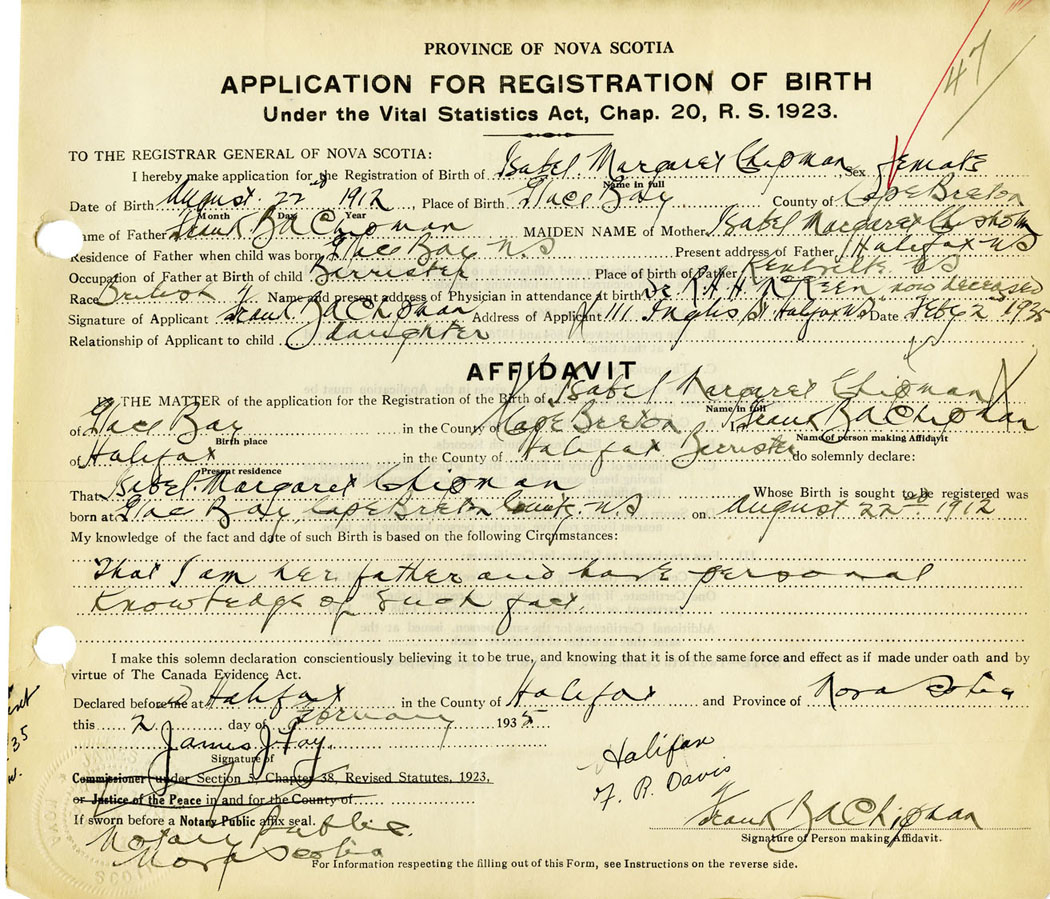 47
PROVINCE OF NOVA SCOTIA
APPLICATION FOR REGISTRATION OF BIRTH
Under the Vital Statistics Act, Chap. 20, R. S. 1923.
TO THE REGISTRAR GENERAL OF NOVA SCOTIA:
I hereby make application for the Registration of Birth of Isabel Margaret Chipman Sex female
Name in full
Date of Birth August 22nd 1912, Place of Birth Glace Bay County of Cape Breton
Month Day Year
Name of Father Frank BA Chipman MAIDEN NAME of Mother Isabel Margaret Chisholm
Residence of Father when child was born Glace Bay N.S Present address of Father Halifax NS
Occupation of Father at Birth of child Barrister Place of birth of Father Kentville NS
Race British Name and present address of Physician in attendance at birth Dr R.H. McKeen now deceased
Signature of Applicant Frank BA Chipman Address of Applicant 111 Inglis St Halifax NS Date Feby 2 1935
Relationship of Applicant to child daughter
AFFIDAVIT
IN THE MATTER of the application for the Registration of the Birth of Isabel Margaret Chipman
Name in full
of Glace Bay in the County of Cape Breton I Frank BA Chipman
Birth place Name of person making Affidavit
of Halifax in the County of Halifax Barrister do solemnly declare:
Present residence
That Isabel Margaret Chipman Whose Birth is sought to be registered was
born at Glace Bay, Cape Breton County N.S on August 22nd 1912
My knowledge of the fact and date of such Birth is based on the following Circumstances:
That I am her father and have personal
knowledge of such fact.
I make this solemn declaration conscientiously believing it to be true, and knowing that it is of the same force and effect as if made under oath and by
virtue of The Canada Evidence Act.
Declared before me at Halifax in the County of Halifax and Province of Nova Scotia
this 2 day of February 1935
James J Fay
Signature of
Commissioner under Section 5, Chapter 38, Revised Statutes, 1923,
or Justice of the Peace in and for the County of
If sworn before a Notary Public affix seal.
Notary Public
Nova Scotia
Halifax
F. R. Davis
Frank BA Chipman
Signature of Person making Affidavit.
For Information respecting the filling out of this Form, see Instructions on the reverse side.
35